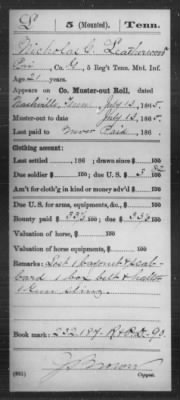 L | 5 (Mounted). | Tenn.
Nicholas C. Leatherwood
Pvt., Co. G, 5 Reg't Tenn. Mtd. Inf.
Age 21 years.
Appears on Co. Muster-out Roll, dated
Nashville, Tenn. July 13, 1865.
Muster-out to date July 13, 1865.
Last paid to Never Paid, 186 .
Clothing account:
Last settled , 186 ; drawn since $ 100
Due soldier $ 100; due U.S. $ 100
Am't for cloth'g in kind or money adv'd $ 100
Due U. S. for arms, equipments, &c., $ 100
Bounty paid $ 100; due $ 100
Valuation of horse, $ 100
Valuation of horse equipments, $ 100
Remarks: Lost 1 bayonet & scab-
bard 1 box belt &
1 Gun sling.
Book mark: 232.187. R&P.D.-90.
Brown
(861) Copyist.